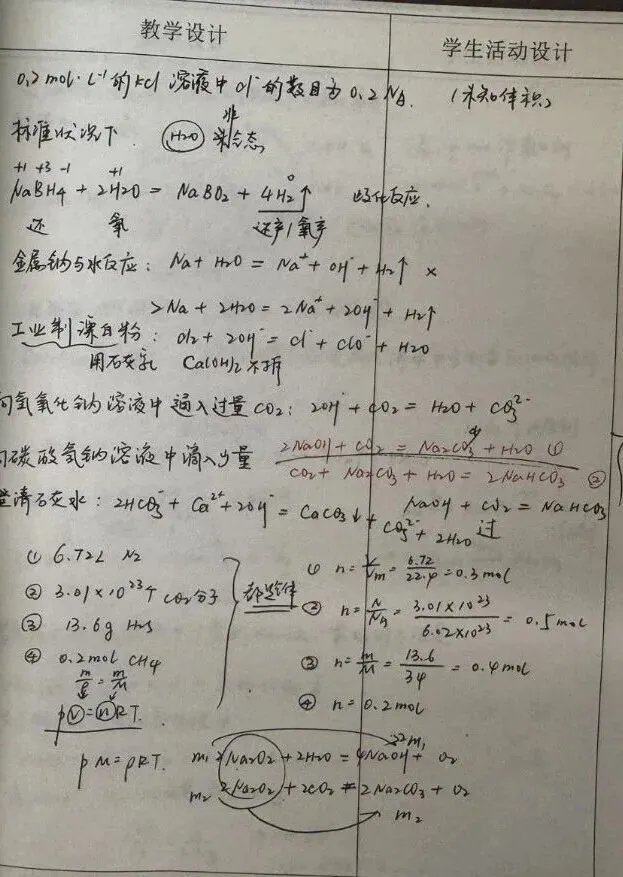 教学设计
学生活动设计
0.2 mol·L⁻¹的KCl 溶液中Cl⁻的数目为0.2NA. (未知体积)
标准状况下. H2O 非气态
+1 +3 -1 +1 0
NaBH4 + 2H2O = NaBO2 + 4H2↑ 归化反应.
还 氧 还产/氧产
金属钠与水反应: Na + H2O = Na⁺ + OH⁻ + H2↑ ×
2Na + 2H2O = 2Na⁺ + 2OH⁻ + H2↑
工业制漂白粉: Cl2 + 2OH⁻ = Cl⁻ + ClO⁻ + H2O
用石灰乳 Ca(OH)2 不拆
向氢氧化钠溶液中通入过量CO2: 2OH⁻ + CO2 = H2O + CO3²⁻
2NaOH + CO2 = Na2CO3 + H2O ①
向碳酸氢钠溶液中滴入少量
CO2 + Na2CO3 + H2O = 2NaHCO3 ②
澄清石灰水: 2HCO3⁻ + Ca²⁺ + 2OH⁻ = CaCO3↓ + CO3²⁻ + 2H2O
NaOH + CO2 = NaHCO3
过
① 6.72L N2
② 3.01×10²³个 CO2分子
③ 13.6g H2S
④ 0.2mol CH4
都是气体
① n = V/Vm = 6.72/22.4 = 0.3mol
② n = N/NA = 3.01×10²³/6.02×10²³ = 0.5mol
③ n = m/M = 13.6/34 = 0.4mol
④ n = 0.2mol
m/ρ = m/M
pV = nRT.
pM = ρRT.
m1 2Na2O2 + 2H2O = 4NaOH + O2 m1
m2 2Na2O2 + 2CO2 = 2Na2CO3 + O2
m2